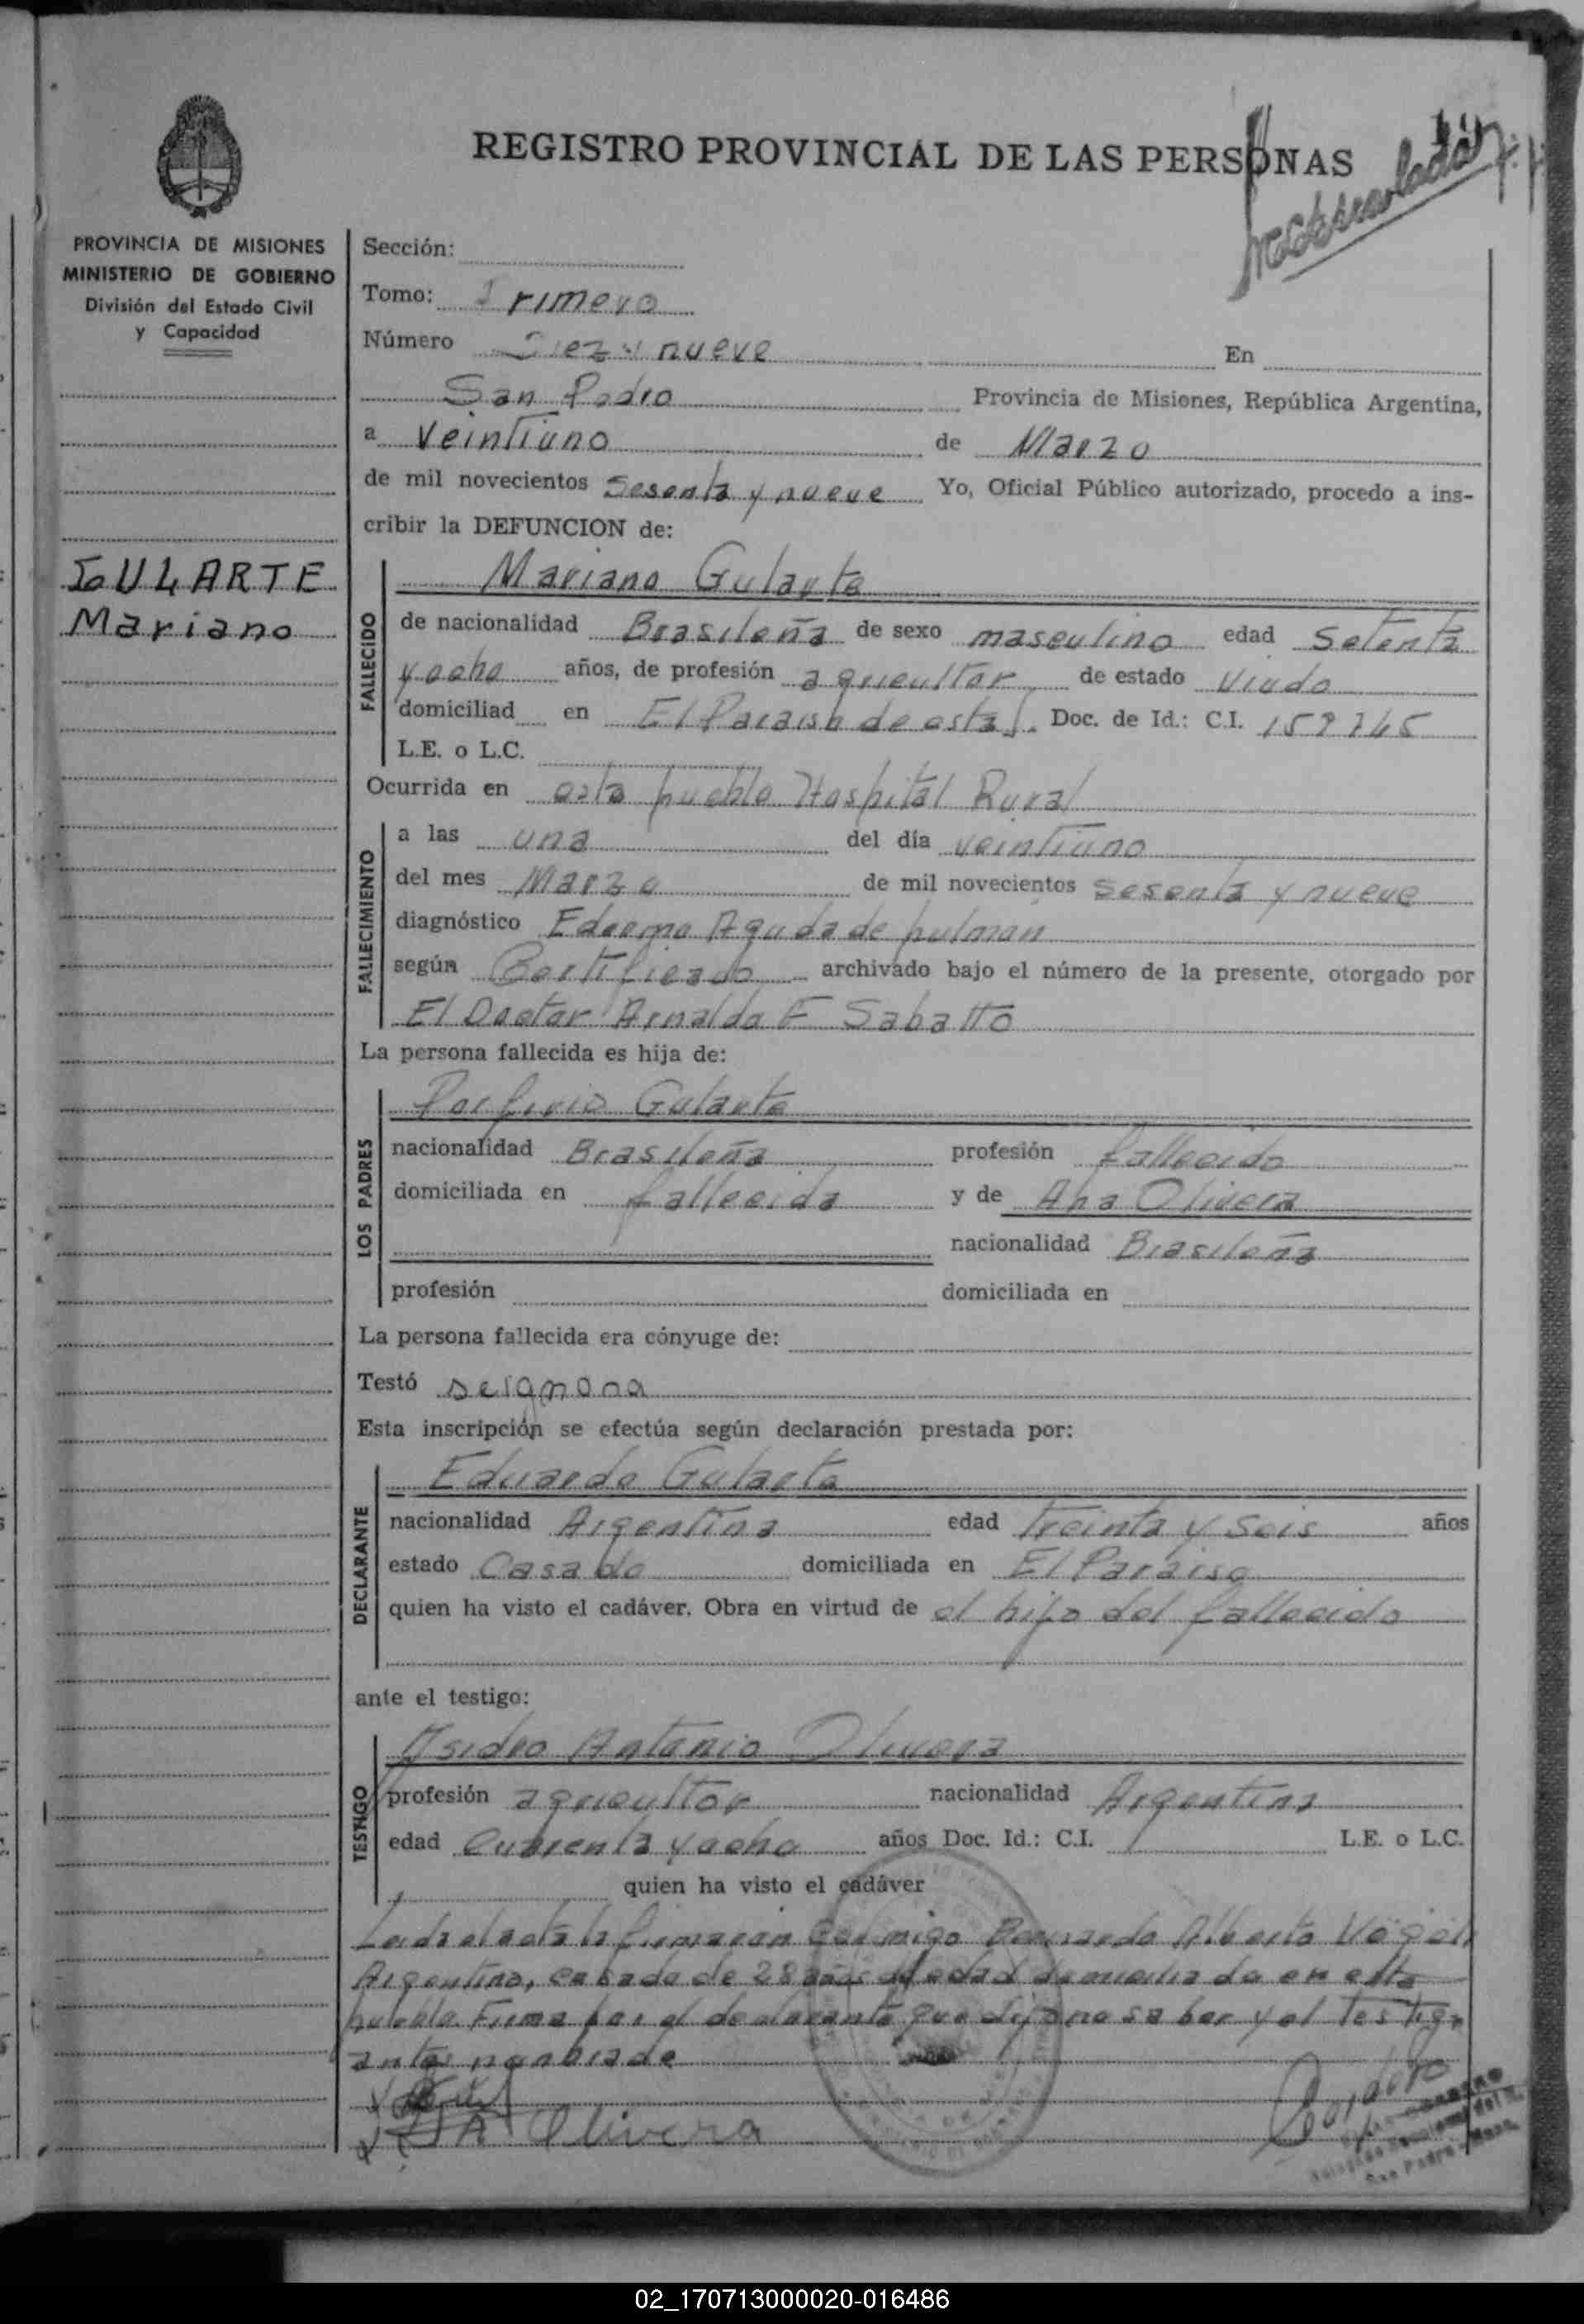 REGISTRO PROVINCIAL DE LAS PERSONAS
PROVINCIA DE MISIONES
MINISTERIO DE GOBIERNO
División del Estado Civil
y Capacidad
Sección:
Tomo: Primero
Número Diez y nueve En
San Pedro Provincia de Misiones, República Argentina,
a Veintiuno de Marzo
de mil novecientos Sesenta y nueve Yo, Oficial Público autorizado, procedo a ins-
cribir la DEFUNCION de:
GULARTE
Mariano
FALLECIDO
Mariano Gularte
de nacionalidad Brasileña de sexo masculino edad Setenta
y ocho años, de profesión agricultor de estado Viudo
domiciliad en El Paraiso de esta J. Doc. de Id.: C.I.
L.E. o L.C.
Ocurrida en este pueblo Hospital Rural
FALLECIMIENTO
a las una del día veintiuno
del mes Marzo de mil novecientos sesenta y nueve
diagnóstico Edeema Aguda de pulman
según Certificado archivado bajo el número de la presente, otorgado por
El Doctor Arnaldo F Sabatto
La persona fallecida es hija de:
LOS PADRES
Porfirio Gularte
nacionalidad Brasileña profesión fallecido
domiciliada en fallecida y de Ana Olivera
nacionalidad Brasileña
profesión domiciliada en
La persona fallecida era cónyuge de:
Testó
Esta inscripción se efectúa según declaración prestada por:
DECLARANTE
Eduardo Gularte
nacionalidad Argentina edad treinta y seis años
estado Casado domiciliada en El Paraiso
quien ha visto el cadáver. Obra en virtud de el hijo del fallecido
ante el testigo:
TESTIGO
Isidro Antonio Olivera
profesión agricultor nacionalidad Argentina
edad Cuarenta y ocho años Doc. Id.: C.I. L.E. o L.C.
quien ha visto el cadáver
Leida el acta la firmaran Conmigo Bernardo Alberto
Argentino, casado de 28 años de edad domiciliado en este
pueblo Firma por el declarante que dijo no saber y el Testigo
antes nombrado
A Olivera
San Pedro
02_170713000020-016486